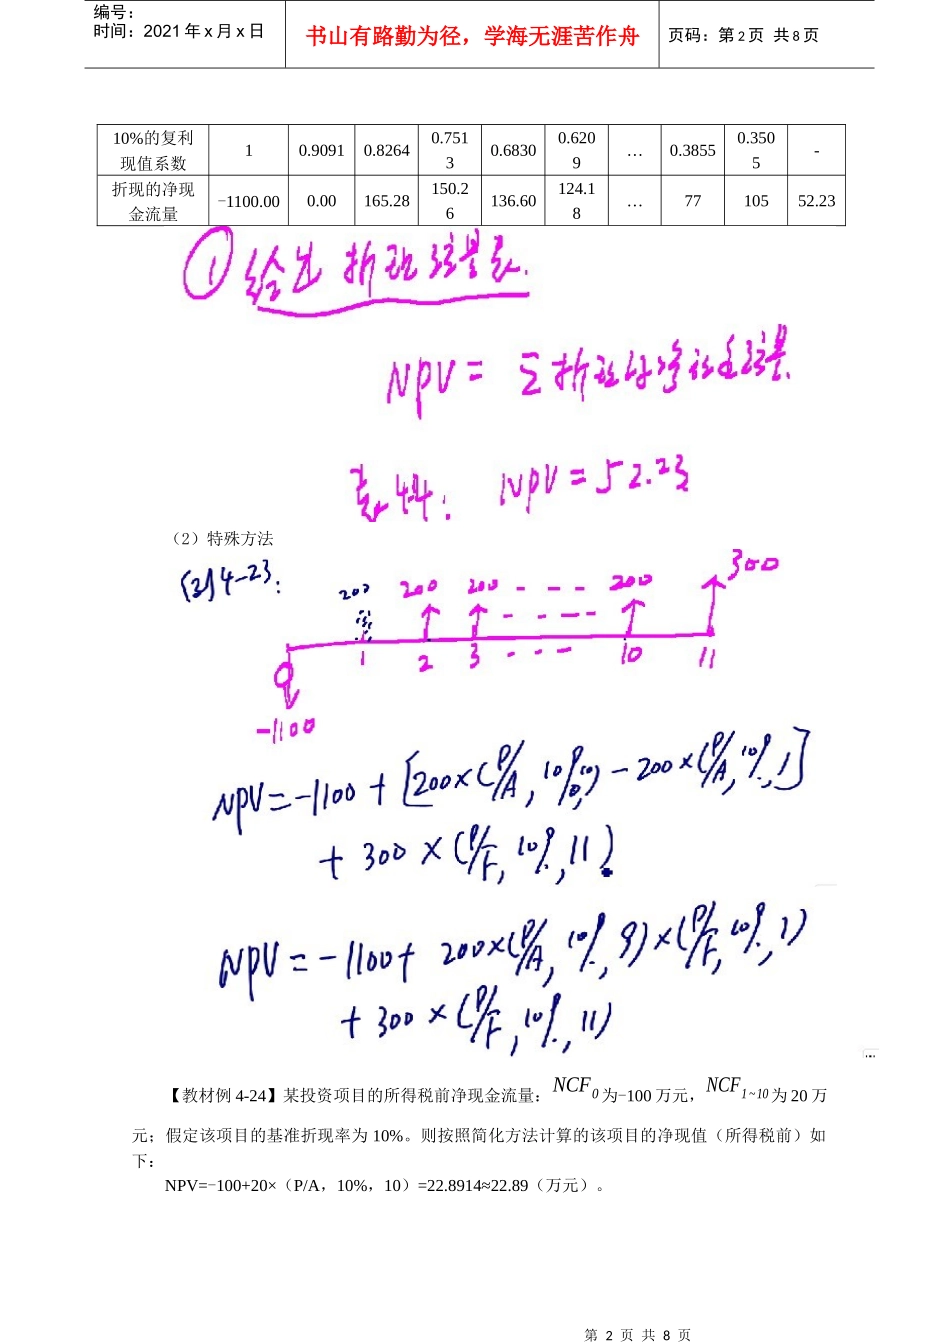 编号：
时间：2021年x月x日
书山有路勤为径，学海无涯苦作舟
页码：第2页 共8页
10%的复利现值系数 1 0.9091 0.8264 0.7513 0.6830 0.6209 … 0.3855 0.3505 -
折现的净现金流量 -1100.00 0.00 165.28 150.26 136.60 124.18 … 77 105 52.23
① 给出折现
NPV = Σ折现的净现金流量
表4-4： NPV = 52.23
（2）特殊方法
例4-23：
200 200 200 - - - 200 300
1 2 3 - - - 10 11
-1100
NPV = -1100 + [200×(P/A, 10%, 10) - 200×(P/A, 10%, 1)]
+ 300 × (P/F, 10%, 11)
NPV = -1100 + 200×(P/A, 10%, 9)×(P/F, 10%, 1)
+ 300×(P/F, 10%, 11)
【教材例 4-24】某投资项目的所得税前净现金流量：NCF0为-100 万元，NCF1~10为 20 万
元；假定该项目的基准折现率为 10%。则按照简化方法计算的该项目的净现值（所得税前）如
下：
NPV=-100+20×（P/A，10%，10）=22.8914≈22.89（万元）。
第 2 页 共 8 页